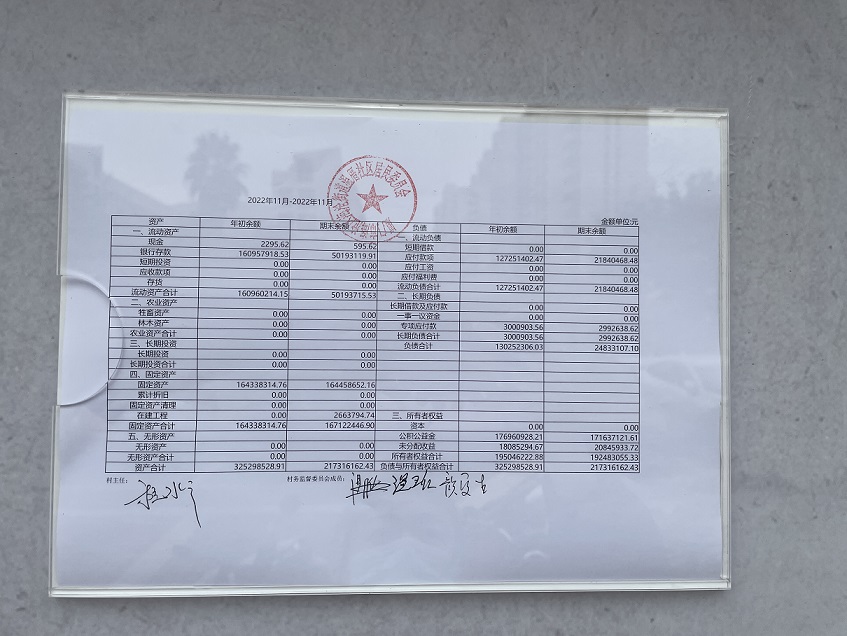 2022年11月-2022年11月
金额单位:元
资产 年初余额 期末余额 负债 年初余额 期末余额
一、流动资产 一、流动负债
现金 2295.62 595.62 短期借款 0.00 0.00
银行存款 160957918.53 50193119.91 应付款项 127251402.47 21840468.48
短期投资 0.00 0.00 应付工资 0.00 0.00
应收款项 0.00 0.00 应付福利费 0.00 0.00
存货 0.00 0.00 流动负债合计 127251402.47 21840468.48
流动资产合计 160960214.15 50193715.53 二、长期负债
二、农业资产 长期借款及应付款 0.00 0.00
牲畜资产 0.00 0.00 一事一议资金 0.00 0.00
林木资产 0.00 0.00 专项应付款 3000903.56 2992638.62
农业资产合计 0.00 0.00 长期负债合计 3000903.56 2992638.62
三、长期投资 负债合计 130252306.03 24833107.10
长期投资 0.00 0.00
长期投资合计 0.00 0.00
四、固定资产
固定资产 164338314.76 164458652.16
累计折旧 0.00 0.00
固定资产清理 0.00 0.00
在建工程 0.00 2663794.74 三、所有者权益
固定资产合计 164338314.76 167122446.90 资本 0.00 0.00
五、无形资产 公积公益金 176960928.21 171637121.61
无形资产 0.00 0.00 未分配收益 18085294.67 20845933.72
无形资产合计 0.00 0.00 所有者权益合计 195046222.88 192483055.33
资产合计 325298528.91 217316162.43 负债与所有者权益合计 325298528.91 217316162.43
村主任: 村务监督委员会成员: